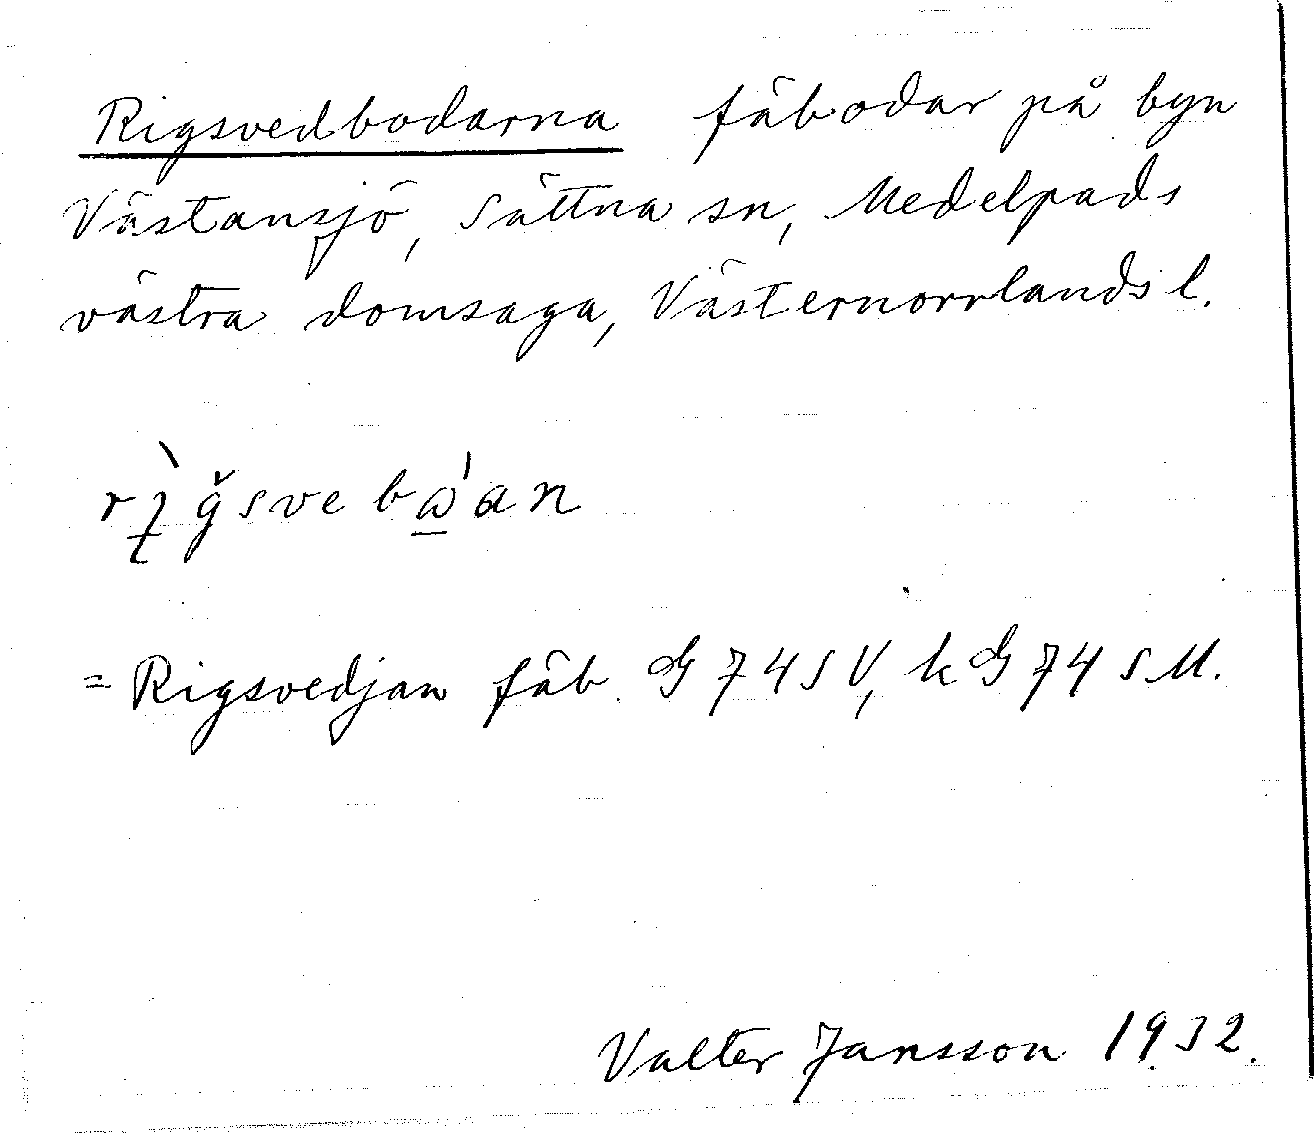 Rigsvedbodarna fäbodar på byn
Västansjö, Sättna sn, Medelpads
västra domsaga, Västernorrlands l.
= Rigsvedjan fäb. G 74 SV, k G 74 s M.
Valter Jansson 1932.